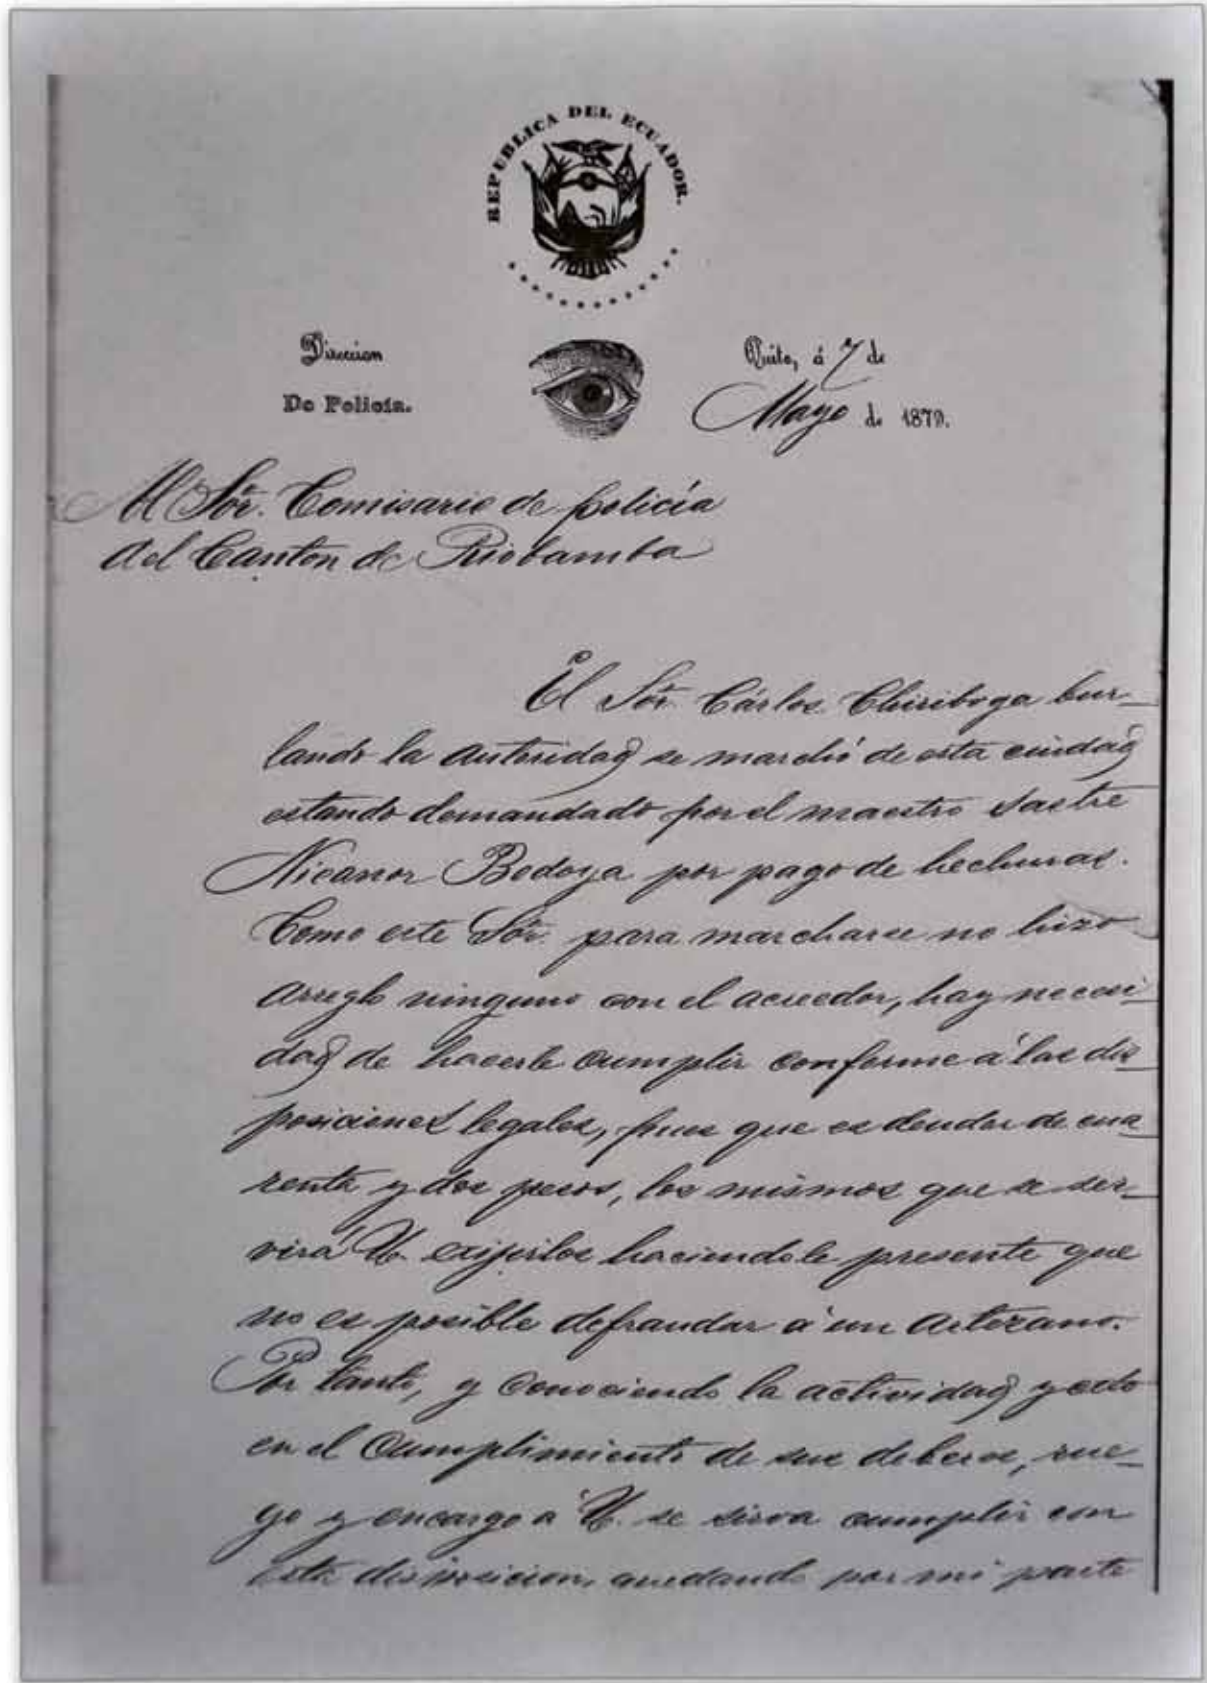 REPUBLICA DEL ECUADOR.
Direccion
De Policía.
Quito, á 7 de
Mayo de 1879.
Al Sor. Comisario de policía
del Canton de Riobamba
El Sor. Cárlos Chiriboga bur-
lando la autoridad se marchó de esta ciudad
estando demandado por el maestro sastre
Nicanor Bedoya por pago de hechuras.
Como este Sor. para marcharse no hizo
arreglo ninguno con el acreedor, hay necesi-
dad de hacerle cumplir conforme á las dis-
posiciones legales, pues que es deudor de cua-
renta y dos pesos, los mismos que se ser-
virá U. exijirlos haciendole presente que
no es posible defraudar á un artezano.
Por tanto, y conociendo la actividad y celo
en el cumplimiento de sus deberes, rue-
go y encargo á U. se sirva cumplir con
esta disposicion, quedando por mi parte